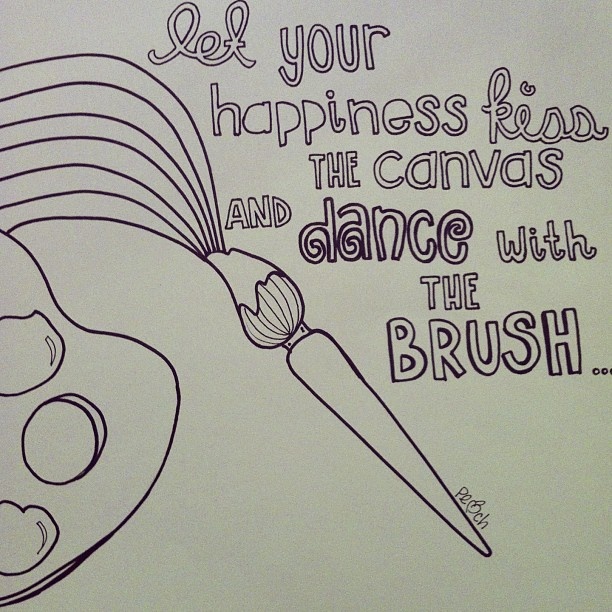 let your
happiness kiss
THE canvas
AND dance with
THE
BRUSH...